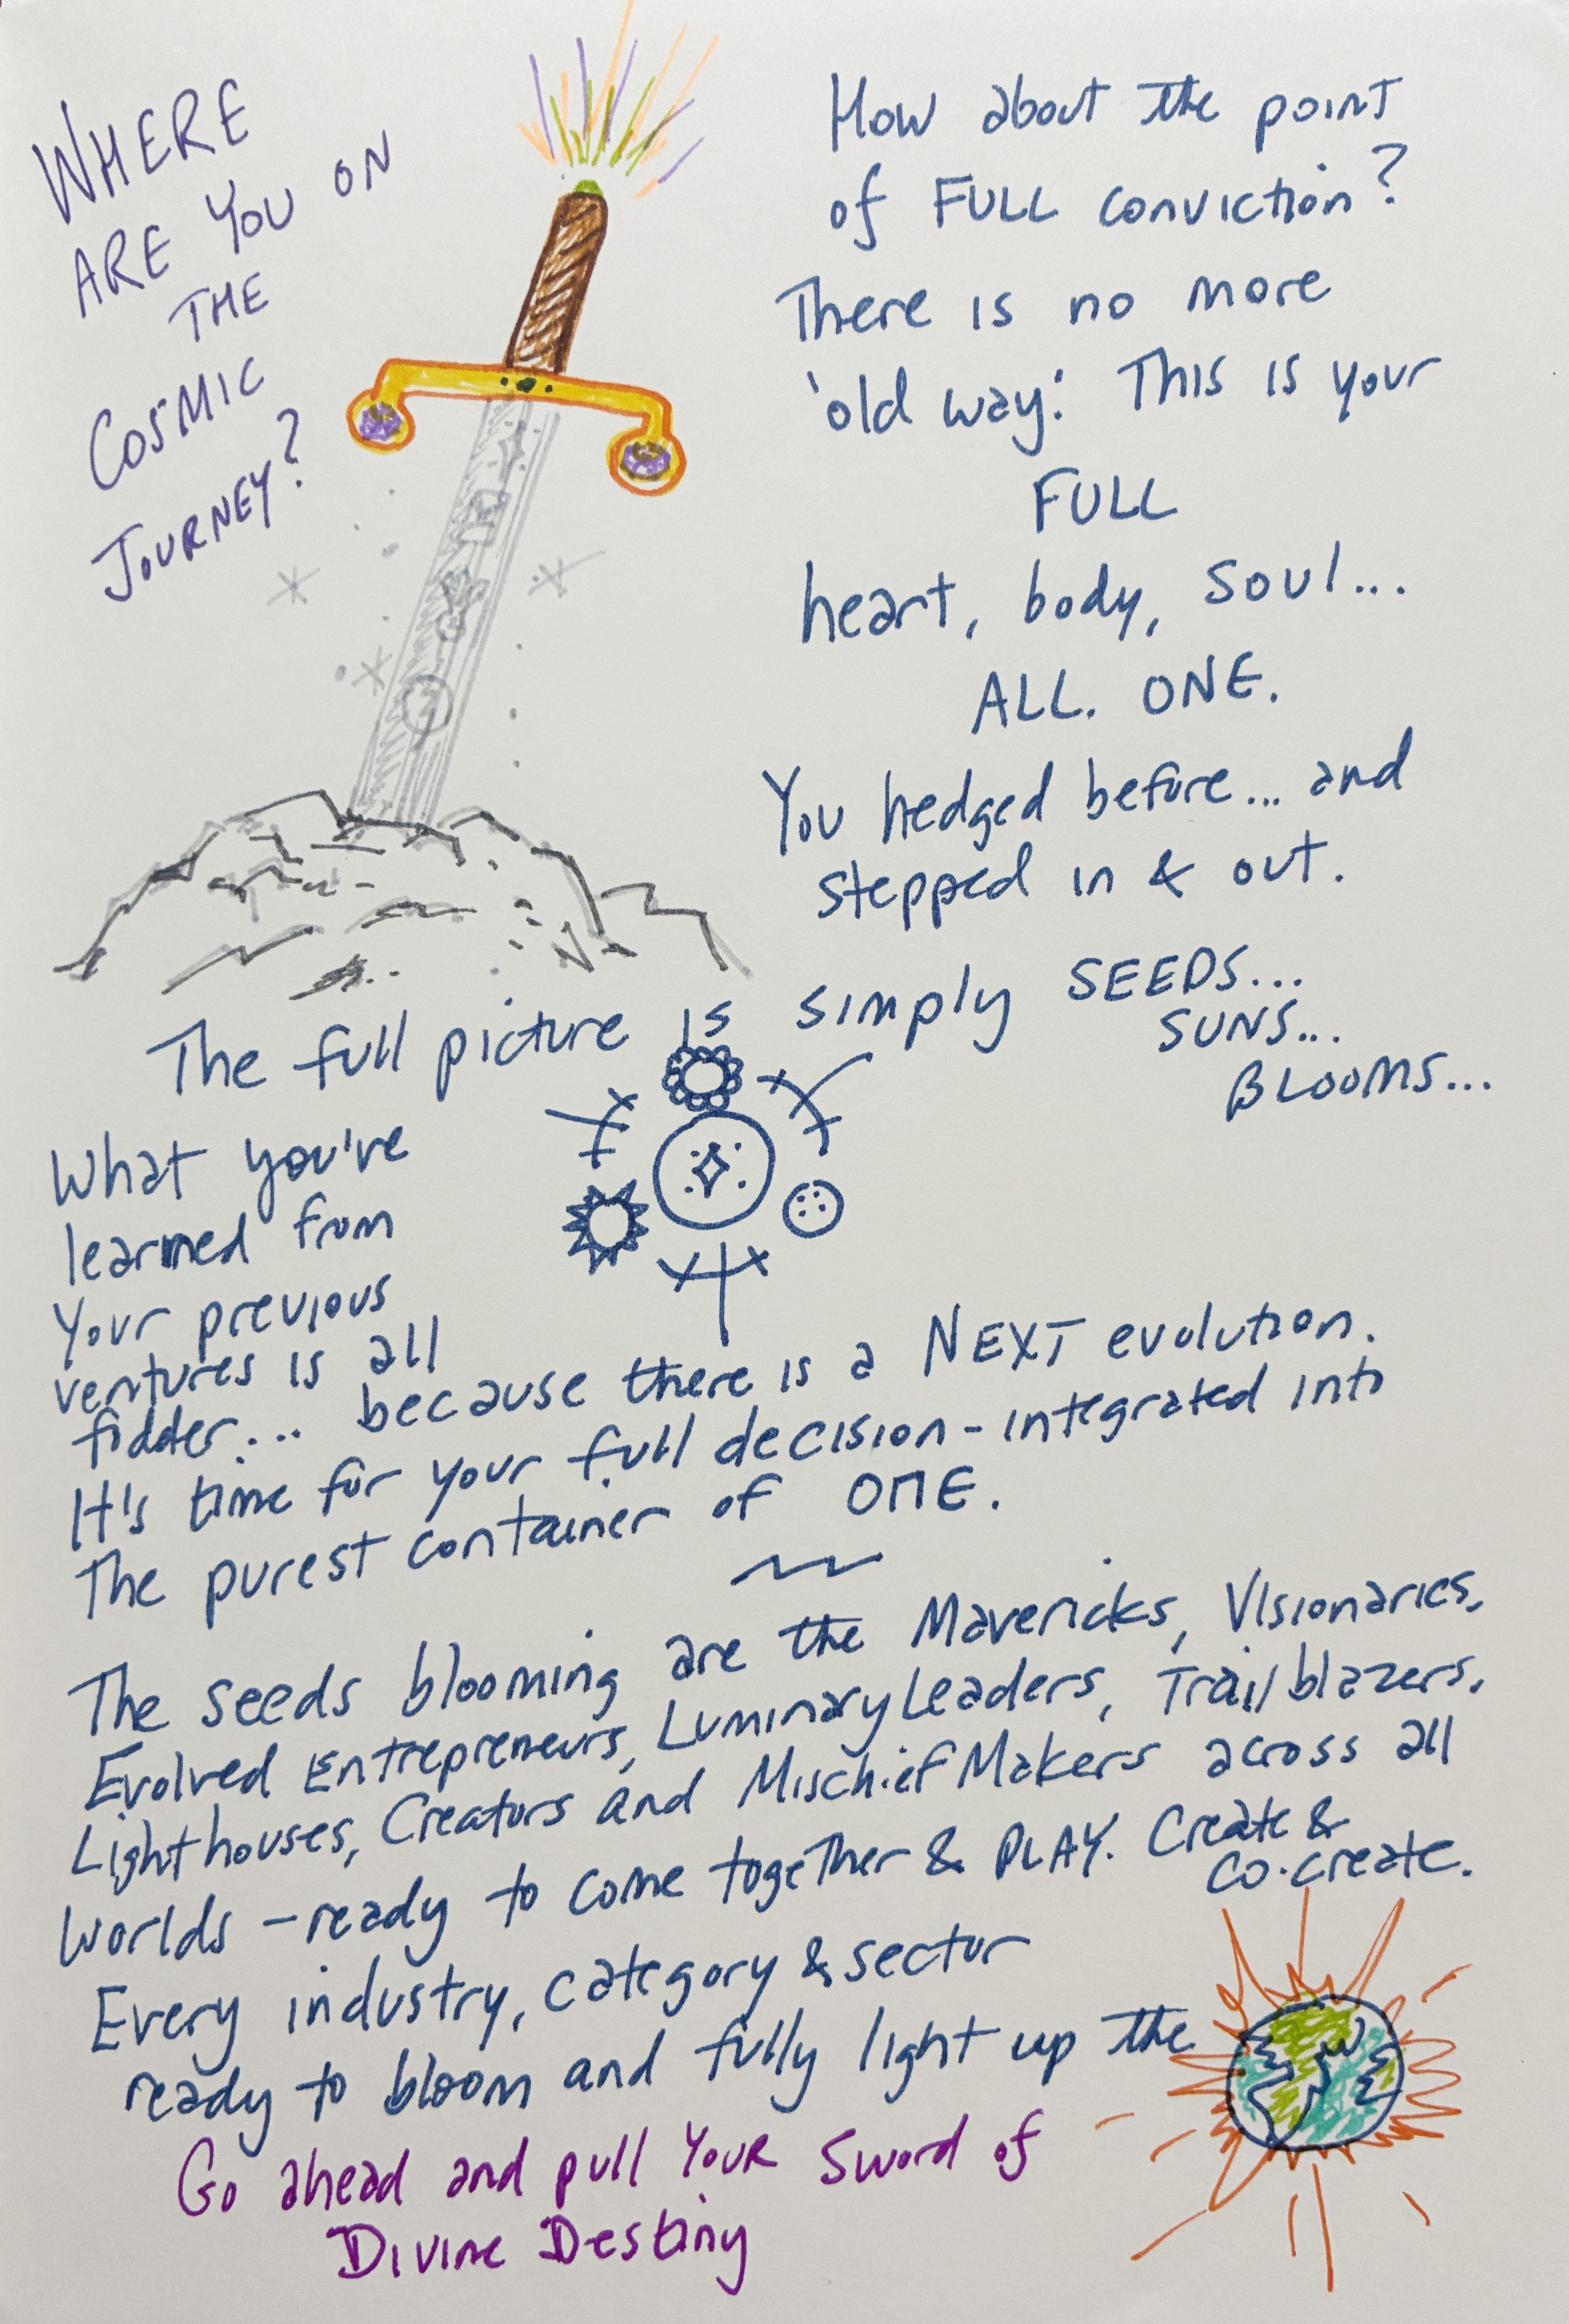 WHERE
ARE YOU ON
THE
COSMIC
JOURNEY?
How about the point
of FULL conviction?
There is no more
'old way.' This is your
FULL
heart, body, soul...
ALL. ONE.
You hedged before... and
stepped in & out.
The full picture is simply SEEDS...
SUNS...
BLOOMS...
What you've
learned from
your previous
ventures is all
fodder... because there is a NEXT evolution.
It's time for your full decision - integrated into
the purest container of ONE.
The seeds blooming are the Mavericks, Visionaries,
Evolved Entrepreneurs, Luminary Leaders, Trailblazers,
Lighthouses, Creators and Mischief Makers across all
worlds - ready to come together & PLAY. Create &
co-create.
Every industry, category & sector
ready to bloom and fully light up the
Go ahead and pull YOUR Sword of
Divine Destiny